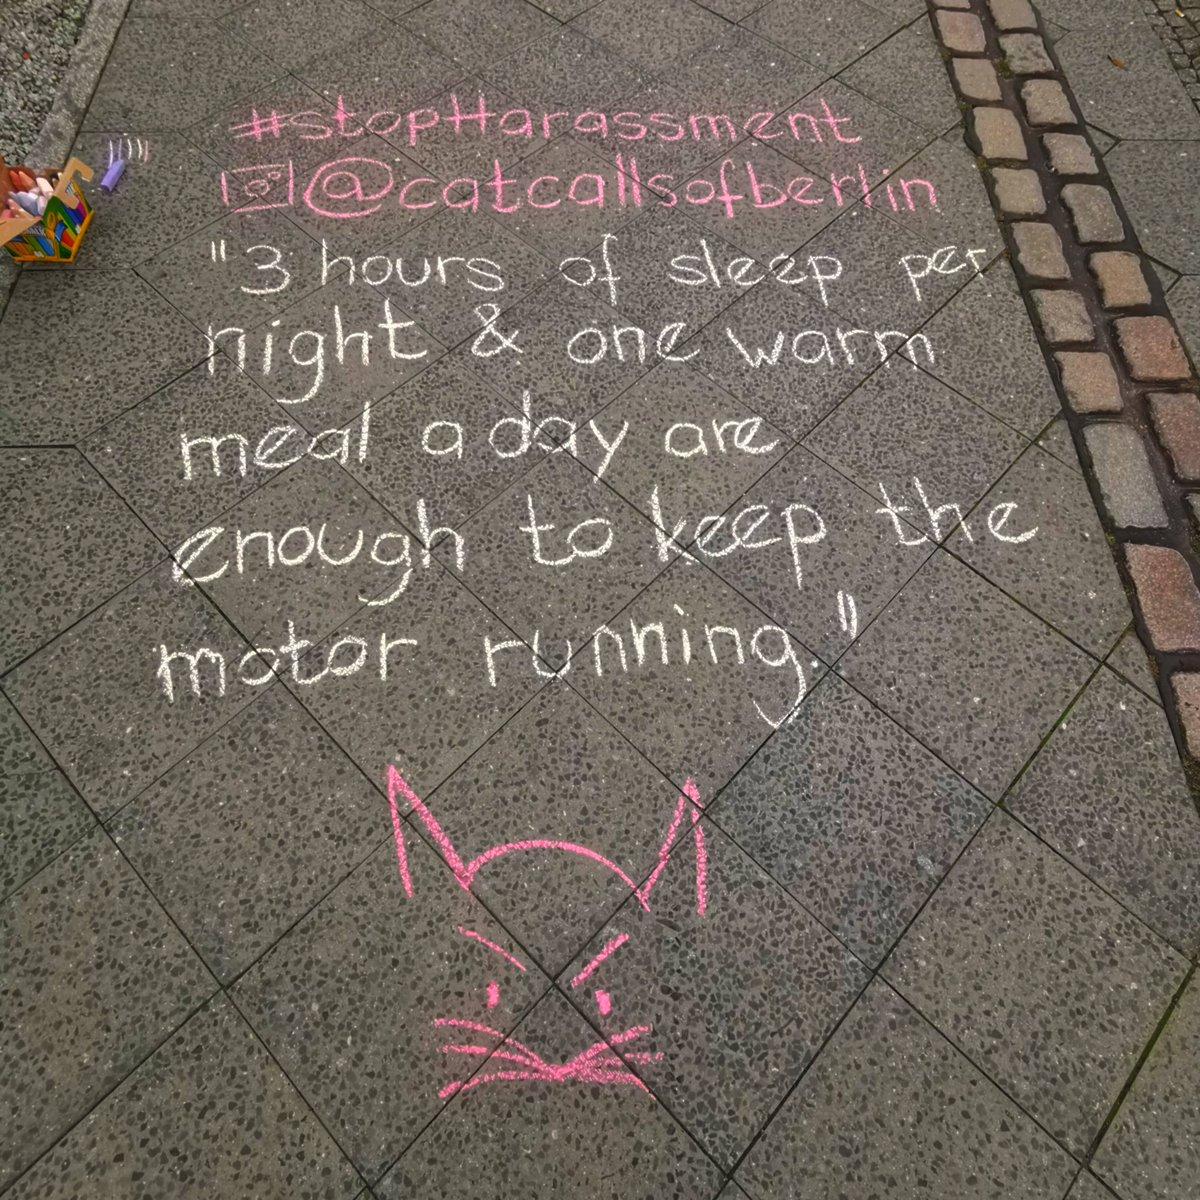 #stopHarassment
@catcallsofberlin
"3 hours of sleep per
night & one warm
meal a day are
enough to keep the
motor running."